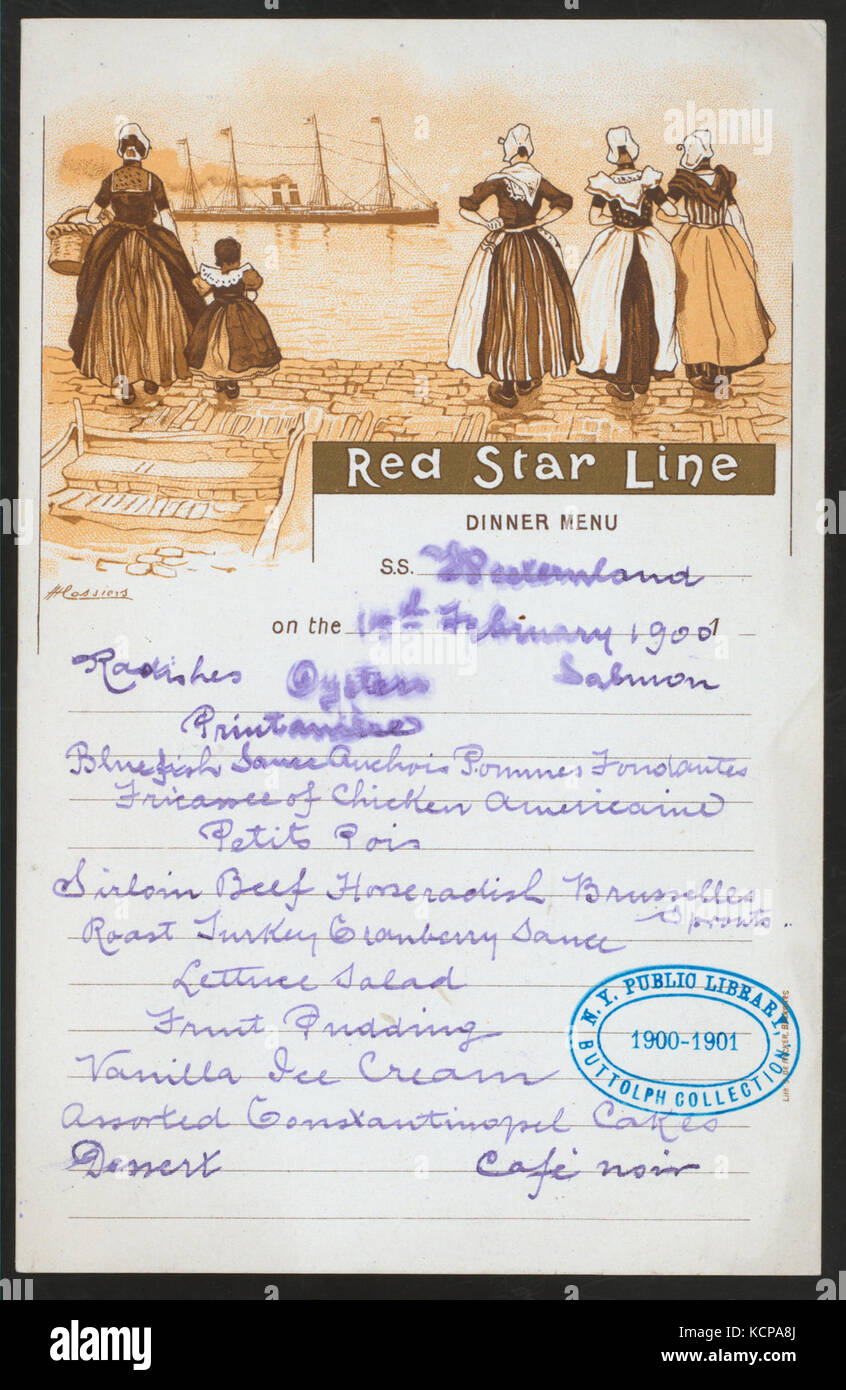 Red Star Line
DINNER MENU
S.S. Westernland
on the February 1901
Radishes Oysters Salmon
Printanière
Bluefish Sauce Anchois Pommes Fondantes
Fricassee of Chicken Americaine
Petits Pois
Sirloin Beef Horseradish Brusselles
Sprouts
Roast Turkey Cranberry Sauce
Lettuce Salad
Fruit Pudding
Vanilla Ice Cream
Assorted Constantinopel Cakes
Dessert Café noir
N.Y. PUBLIC LIBRARY
1900-1901
BUTTOLPH COLLECTION
H Cassiers
alamy stock photo
Image ID: KCPA8J
www.alamy.com